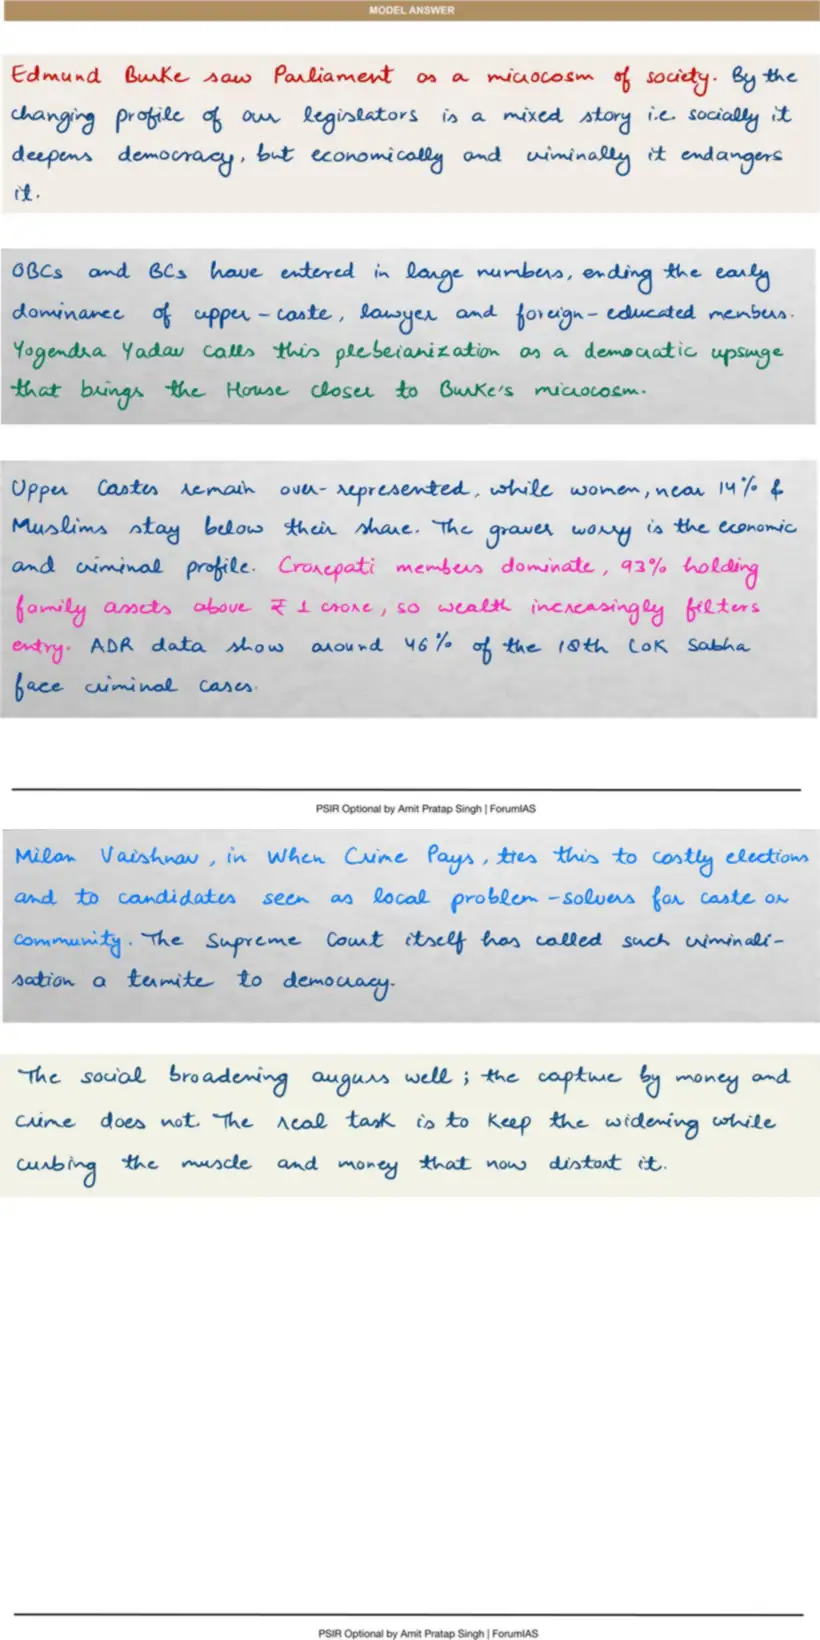 MODEL ANSWER
Edmund Burke saw Parliament as a microcosm of society. By the
changing profile of our legislators is a mixed story i.e. socially it
deepens democracy, but economically and criminally it endangers
it.
OBCs and BCs have entered in large numbers, ending the early
dominance of upper-caste, lawyer and foreign-educated members.
Yogendra Yadav calls this plebeianization as a democratic upsurge
that brings the House closer to Burke's microcosm.
Upper Castes remain over-represented, while women, near 14% &
Muslims stay below their share. The graver worry is the economic
and criminal profile. Crorepati members dominate, 93% holding
family assets above ₹ 1 crore, so wealth increasingly filters
entry. ADR data show around 46% of the 18th Lok Sabha
face criminal cases.
PSIR Optional by Amit Pratap Singh | ForumIAS
Milan Vaishnav, in When Crime Pays, ties this to costly elections
and to candidates seen as local problem-solvers for caste or
community. The Supreme Court itself has called such criminali-
sation a termite to democracy.
The social broadening augurs well; the capture by money and
crime does not. The real task is to keep the widening while
curbing the muscle and money that now distort it.
PSIR Optional by Amit Pratap Singh | ForumIAS